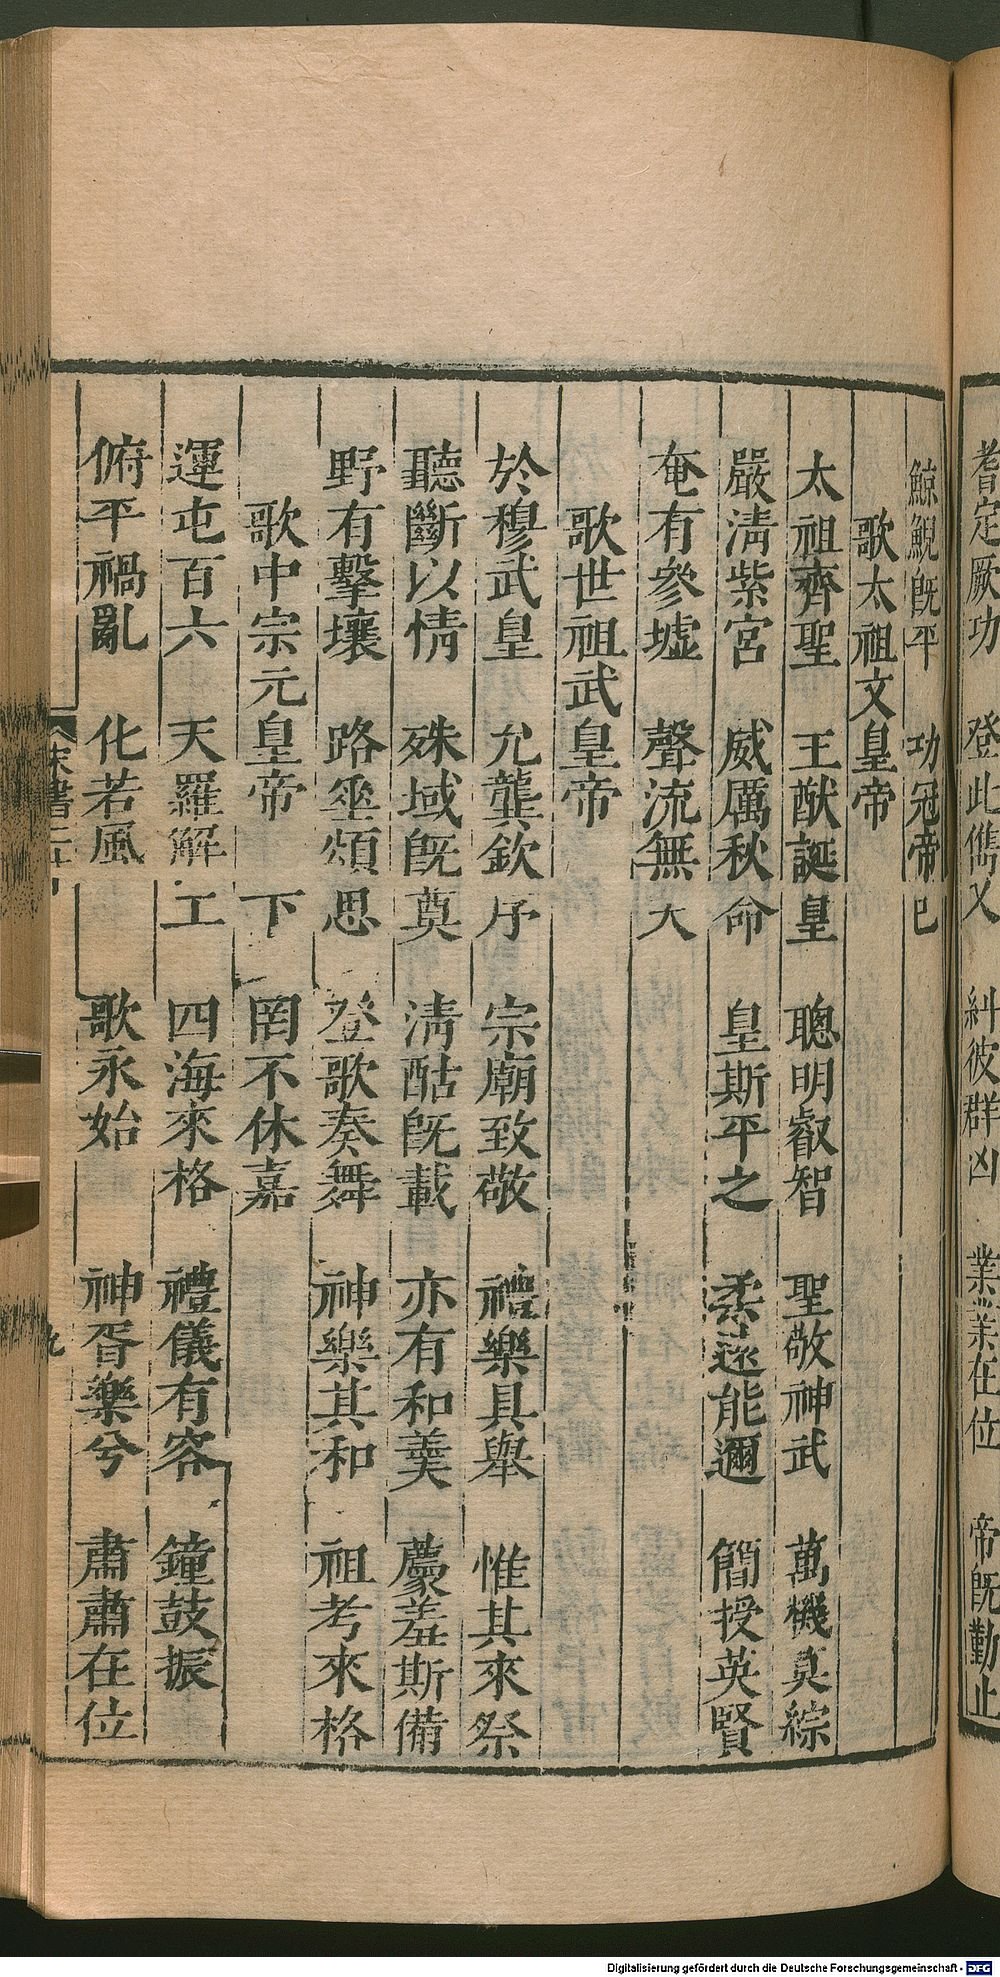 耆定厥功　登此儁乂　糾彼群凶　業業在位　帝旣勤止
鯨鯢旣平　功冠帝
歌太祖文皇帝
太祖齊聖　王猷誕皇　聰明叡智　聖敬神武　萬機莫綜
嚴淸紫宮　威厲秋命　皇斯平之　柔遠能邇　簡授英賢
奄有參墟　聲流無
歌世祖武皇帝
於穆武皇　允龔欽　宗廟致敬　禮樂具舉　惟其來祭
聽斷以情　殊域旣奠　淸酤旣載　亦有和羹　薦羞斯備
野有擊壤　路垂頌思　登歌奏舞　神樂其和　祖考來格
歌中宗元皇帝　下　罔不休嘉
運屯百六　天羅解　四海來格　禮儀有容　鐘鼓振
俯平禍亂　化若風　歌永始　神胥樂兮　肅肅在位
宋書二十
九
Digitalisierung gefördert durch die Deutsche Forschungsgemeinschaft - DFG